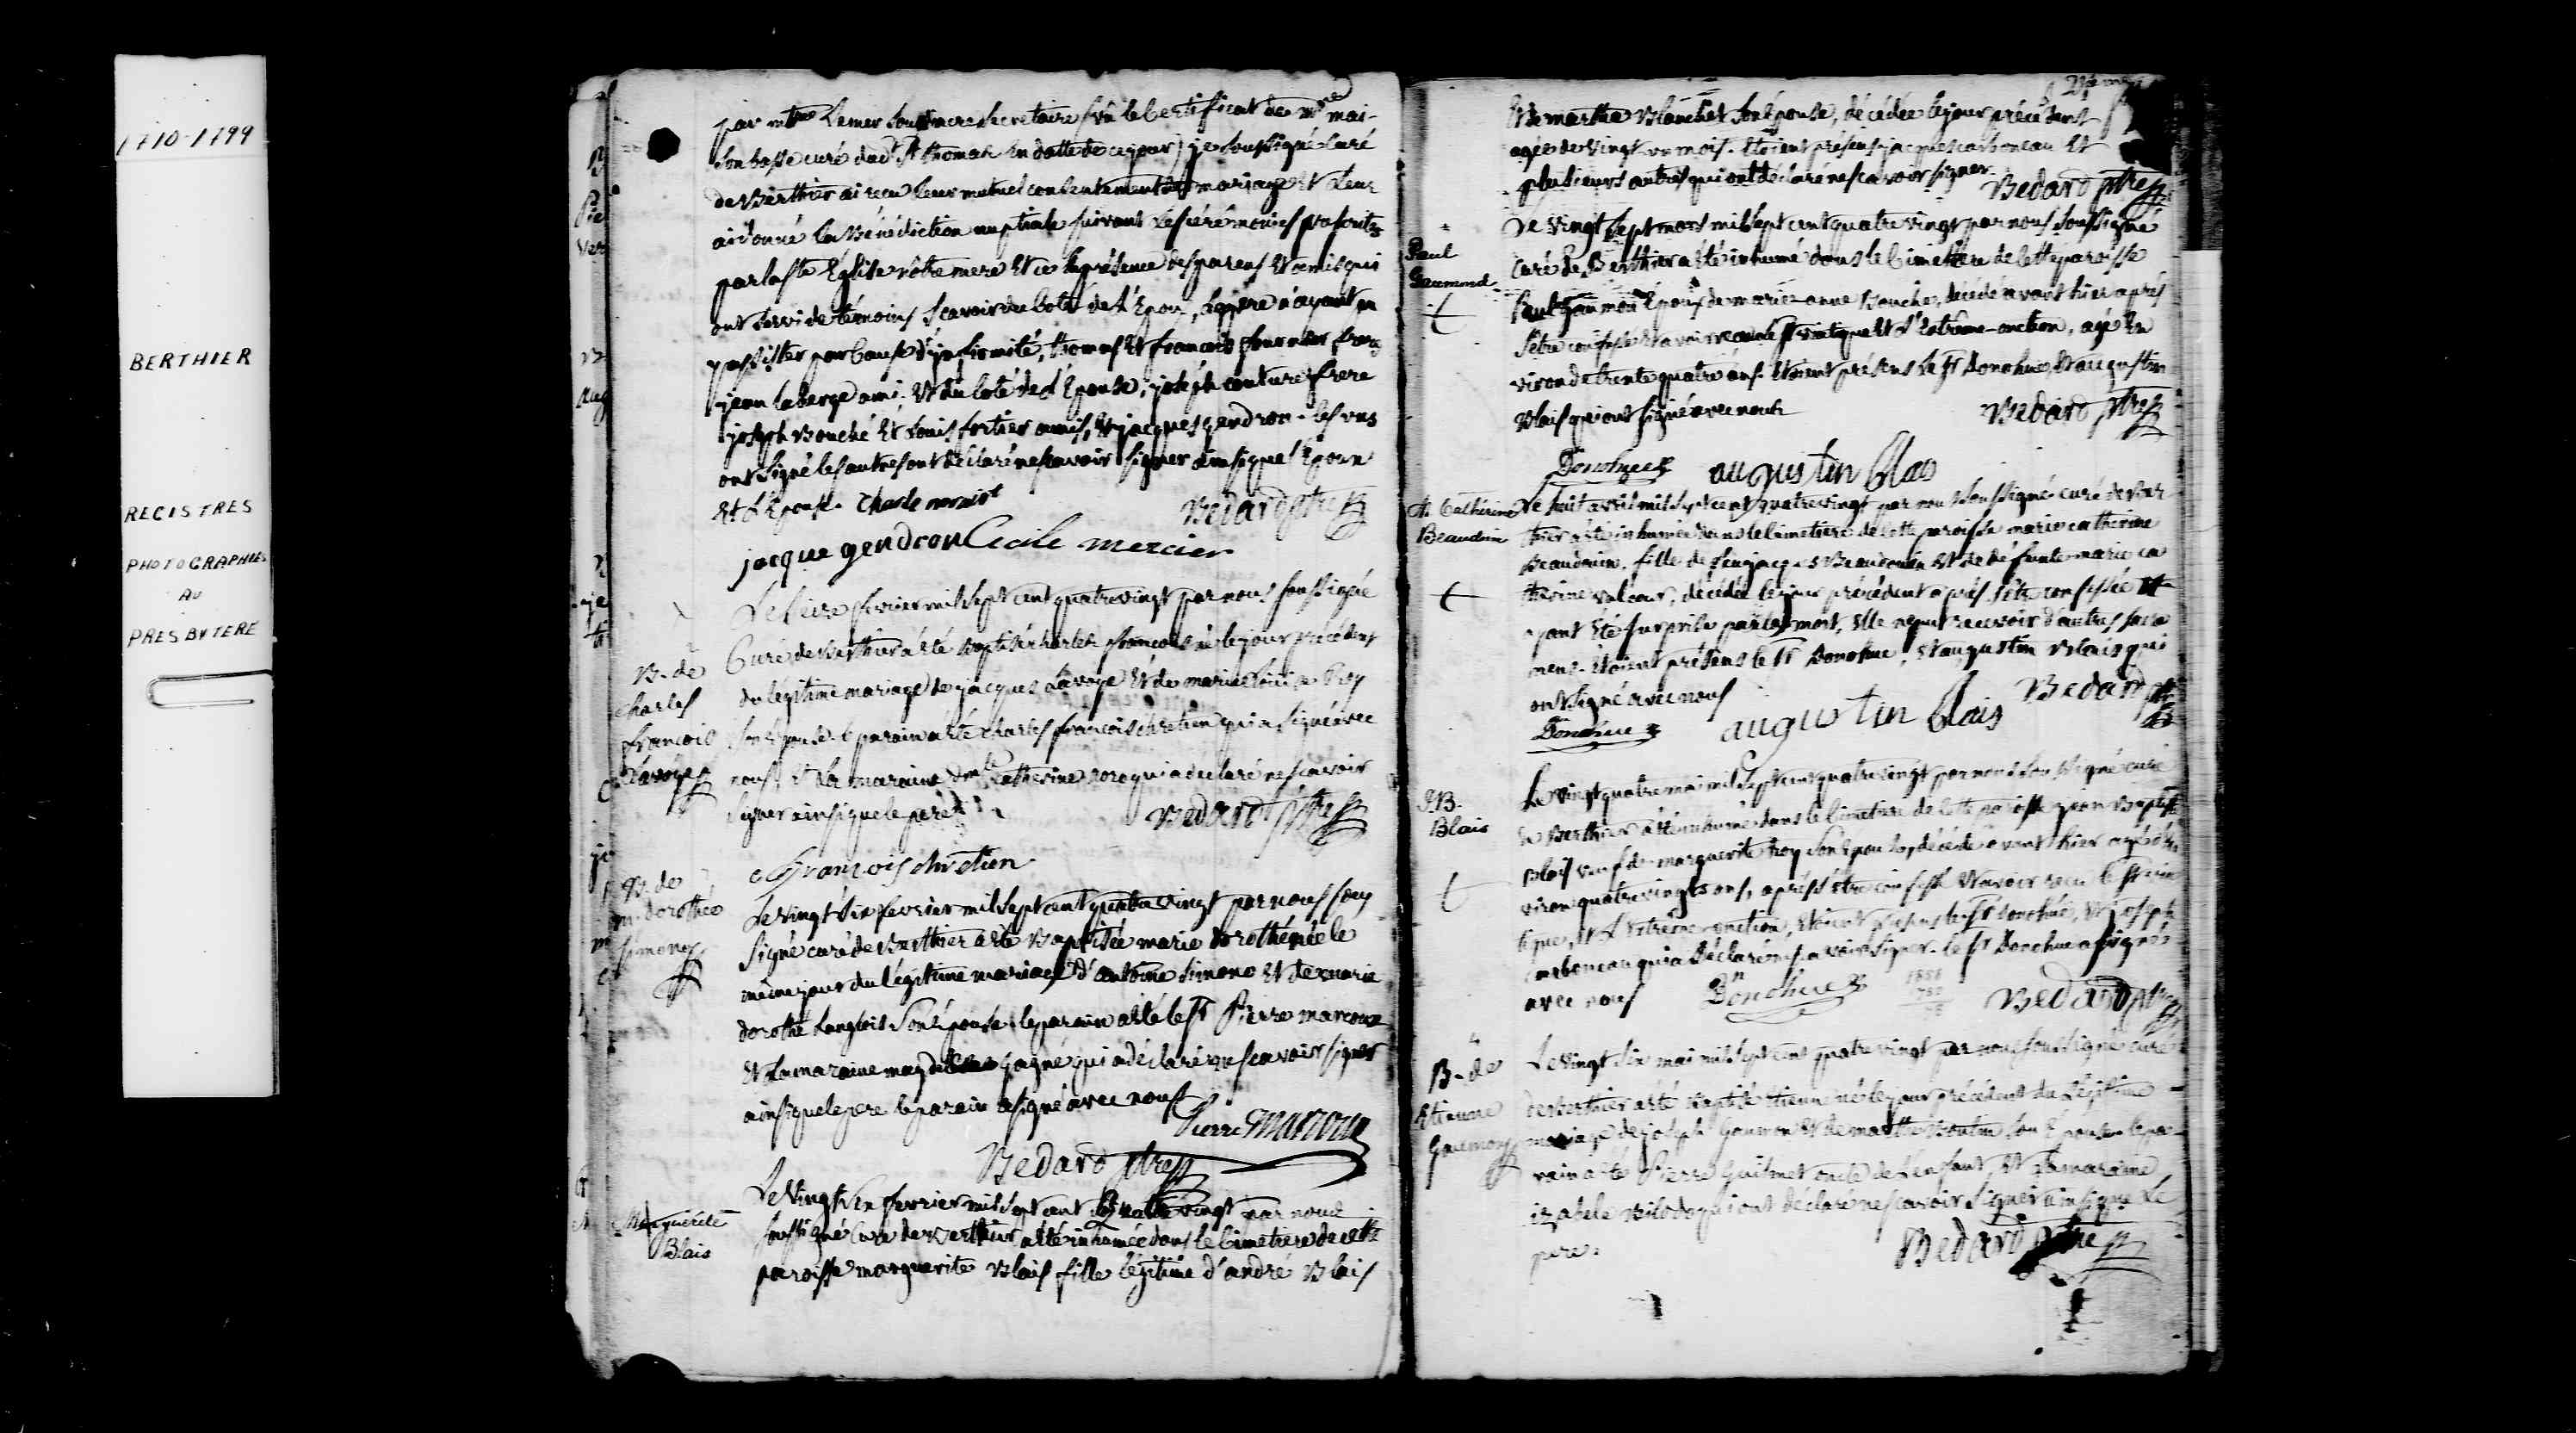 1710-1799
BERTHIER
REGISTRES
PHOTOGRAPHIES
AU
PRESBYTERE
par mtre soussecretaire le Certificat de mre mai-
son basse curé dud. St thomas en datte de ce jour) je soussigné Curé
de Berthier ai recu leur mutuel consentement de mariage et leur
ai donné la Bénédiction nuptiale suivant les cérémonies prescrites
par la ste Eglise nôtre mere Et ce en présence des parens Et amis qui
ont servi de témoins scavoir du coté de l'Epoux, le pere n'ayant pu
y assister pour cause d'infirmité, thomas Et francois fournier
jean laberge ami, Et du coté de l'Epouse, joseph couture frere
joseph Bouché Et Louis fortier amis, Et jacques gendron. les uns
ont signé les autres ont déclaré ne scavoir signer ainsi que l'Epoux
Et l'Epouse. Charle
Bedard ptre
jacque gendron Cecile mercier
B. de
charles
francois
Lavoye
Le seize fevrier mil sept cent quatre vingt par nous soussigné
Curé de Berthier a été Baptisé charles francois né le jour précédent
du légitime mariage de jacques Lavoye Et de marie Roy
son Epouse. le parain a été charles francois chretien qui a signé avec
nous, Et la maraine dmlle Catherine qui a declaré ne scavoir
signer ainsi que le pere
Bedard ptre
C francois chretien
B. de
m. dorothée
Simono
Le vingt six fevrier mil sept cent quatre vingt par nous sous
signé curé de Berthier a été Baptisée marie dorothé née le
même jour du légitime mariage d'antoine Simono Et de marie
dorothé Langlois son Epouse. le parain a été le sr Pierre marcoux
Et la maraine magdelene gagné qui a déclaré ne scavoir signer
ainsi que le pere le parain a signé avec nous
Pierre marcoux
Bedard ptre
Marguerite
Blais
Le vingt fevrier mil sept cent quatre vingt par nous
soussigné Curé de Berthier a été inhumée dans le Cimetiere de cette
paroisse marguerite Blais fille légitime d'andré Blais
Et de marthe Blanchet son Epouse, décédée le jour précédent
agée de vingt un mois. Etoient présens jacques carboneau Et
plusieurs autres qui ont déclaré ne scavoir signer.
Bedard ptre
Paul
Gaumond
Le vingt sept mars mil sept cent quatre vingt par nous soussigné
Curé de Berthier a été inhumé dans le Cimetiere de cette paroisse
Paul Gaumon Epoux de marie anne Bouché, décédé avant hier après
s'être confessé Et avoir recu le st viatique Et l'Extrême-onction, agé En
viron de trente quatre ans. Etoient présens le sr Donohue, Et augustin
Blais qui ont signé avec nous
Bedard ptre
Donohue augustin blais
M. Catherine
Beaudoin
Le huit avril mil sept cent quatre vingt par nous soussigné curé de Ber
thier a été inhumée dans le Cimetiere de cette paroisse marie catherine
Beaudouin, fille de feu jacques Beaudouin Et de défunte marie ca
therine valcour, décédée le jour précédent après s'etre confessée Et
ayant été surprise par la mort, Elle ne put recevoir d'autres sacre
mens. Etoient présens le sr Donohue, Et augustin Blais qui
ont signé avec nous
Bedard ptre
Donohue augustin blais
J.B.
Blais
Le vingt quatre mai mil sept cent quatre vingt par nous soussigné curé
de Berthier a été inhumé dans le Cimetiere de cette paroisse jean Baptiste
Blais veuf de marguerite Roy son Epouse, décédé avant hier agé d'En
viron quatre vingts ans, après s'être confessé Et avoir recu le st via
tique, Et l'Extrême-onction, Etoient présens le sr Donohue, Et joseph
carboneau qui a déclaré ne scavoir signer. le sr Donohue a signé
avec nous Donohue
1858
780
78
Bedard ptre
B. de
Etienne
Gaumon
Le vingt six mai mil sept cent quatre vingt par nous soussigné curé
de Berthier a été Baptisé Etienne né le jour précédent du légitime
mariage de joseph Gaumon Et de marthe Boutin son Epouse. le pa-
rain a été Pierre Guilmet oncle de l'enfant, Et la maraine
izabele Bilodo qui ont déclaré ne scavoir signer ainsi que le
pere.
Bedard ptre